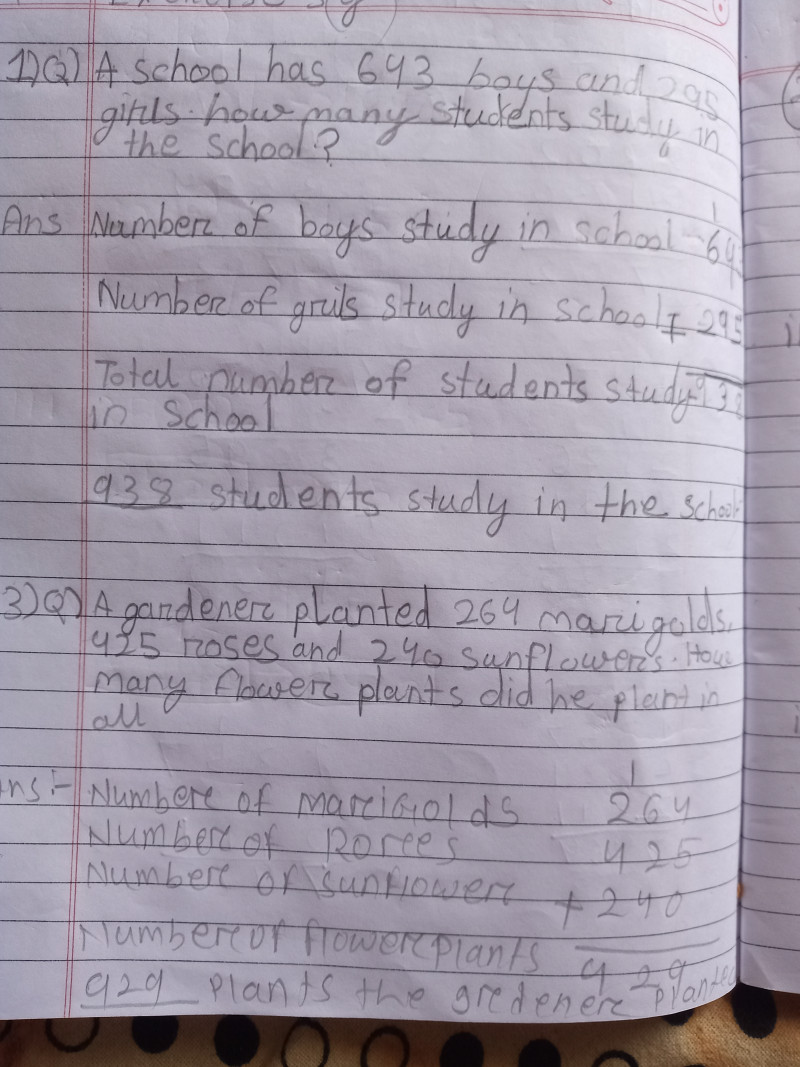 1)Q) A school has 643 boys and 295
girls. how many students study in
the school?
1
Ans Number of boys study in school - 643
Number of gruils study in school + 295
Total number of students study - 938
in school
938 students study in the school
3)Q) A gardener planted 264 marigolds,
425 roses and 240 sunflowers. How
many flower plants did he plant in
all
1
Ans:- Number of marigolds 264
Number of Rorees 425
Number of sunflower + 240
Number of flower plants 929
929 plants the gredener planted